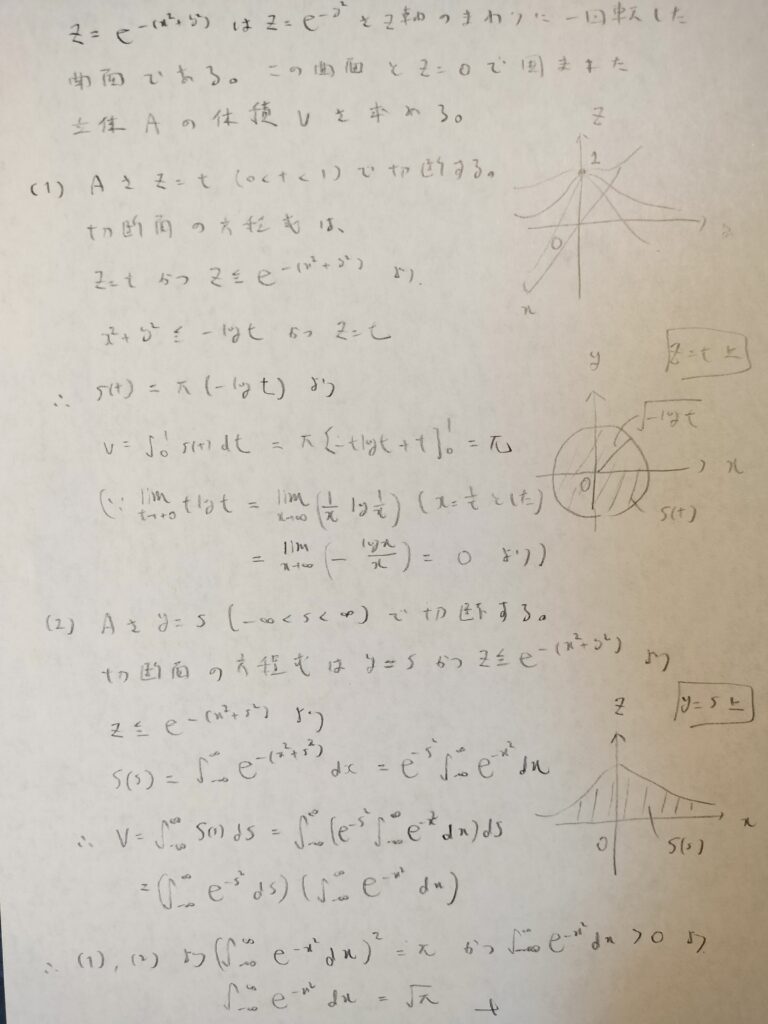 z = e^{-(x²+y²)} は z = e^{-y²} を z軸のまわりに一回転した
曲面である。この曲面と z=0 で囲まれた
立体 A の体積 V を求める。
(1) A を z = t (0<t<1) で切断する。
切断面の方程式は、
z=t かつ z ≦ e^{-(x²+y²)} より.
x²+y² ≦ -log t かつ z=t
∴ S(t) = π(-log t) より
V = ∫₀¹ S(t) dt = π[-t log t + t]₀¹ = π
(∵ lim_{t→+0} t log t = lim_{x→∞} (1/x log 1/x) (x = 1/t とした)
= lim_{x→∞} (- log x / x) = 0 より)
(2) A を y = s (-∞<s<∞) で切断する。
切断面の方程式は y=s かつ z ≦ e^{-(x²+y²)} より
z ≦ e^{-(x²+s²)} より
S(s) = ∫_{-∞}^{∞} e^{-(x²+s²)} dx = e^{-s²} ∫_{-∞}^{∞} e^{-x²} dx
∴ V = ∫_{-∞}^{∞} S(s) ds = ∫_{-∞}^{∞} (e^{-s²} ∫_{-∞}^{∞} e^{-x²} dx) ds
= (∫_{-∞}^{∞} e^{-s²} ds) (∫_{-∞}^{∞} e^{-x²} dx)
∴ (1), (2) より (∫_{-∞}^{∞} e^{-x²} dx)² = π かつ ∫_{-∞}^{∞} e^{-x²} dx > 0 より
∫_{-∞}^{∞} e^{-x²} dx = √π
z
1
0
x
z=t 上
y
√-log t
0
x
S(t)
y=s 上
z
0
x
S(s)